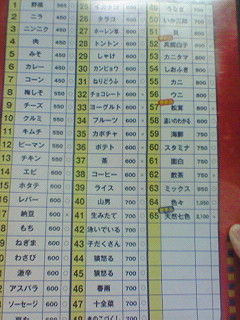 1 野菜
2 ニラ 450
3 ニンニク 450
4 肉 450
5 みそ 450
6 カレー 450
7 コーン 450
8 梅しそ 550
9 チーズ 550
10 クルミ 550
11 キムチ 550
12 ピーマン 550
13 チキン 550
14 エビ 600
15 ホタテ 600
16 レバー 600
納豆 600
もち 600
ねぎま 600
わさび 600
激辛 600
アスパラ 600
ソーセージ 600
26 タラコ 600
27 ホーレン草 600
28 トントン 600
29 しゃけ 600
30 カンピョウ 600
31 ねりどうふ 600
32 チョコレート 600
33 ヨーグルト 600
34 フルーツ 600
35 カボチャ 600
36 ポテト 600
37 茶 600
38 コーヒー 600
39 ライス 600
40 山男 700
41 生みたて 700
42 泳いでいる 700
43 子だくさん 700
44 猿怒る 700
45 猿怒る 700
46 春雨 700
47 十全菜 700
50 いか三昧 700
51
52
53 カニタマ 700
54 しおふき 700
55 カニ 700
56 ウニ 700
57 松茸 800
58 違いのわかる 600
59 海鮮 750
60 スタミナ 750
61 面白 750
62 飲茶 750
63 ミックス 950
64 色々 1,050
65 天然七色 2,100